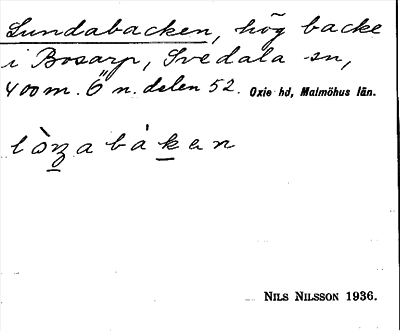 Lundabacken, hög backe
i Bosarp, Svedala sn,
400 m. Ö n. delen 52. Oxie hd, Malmöhus län.
NILS NILSSON 1936.